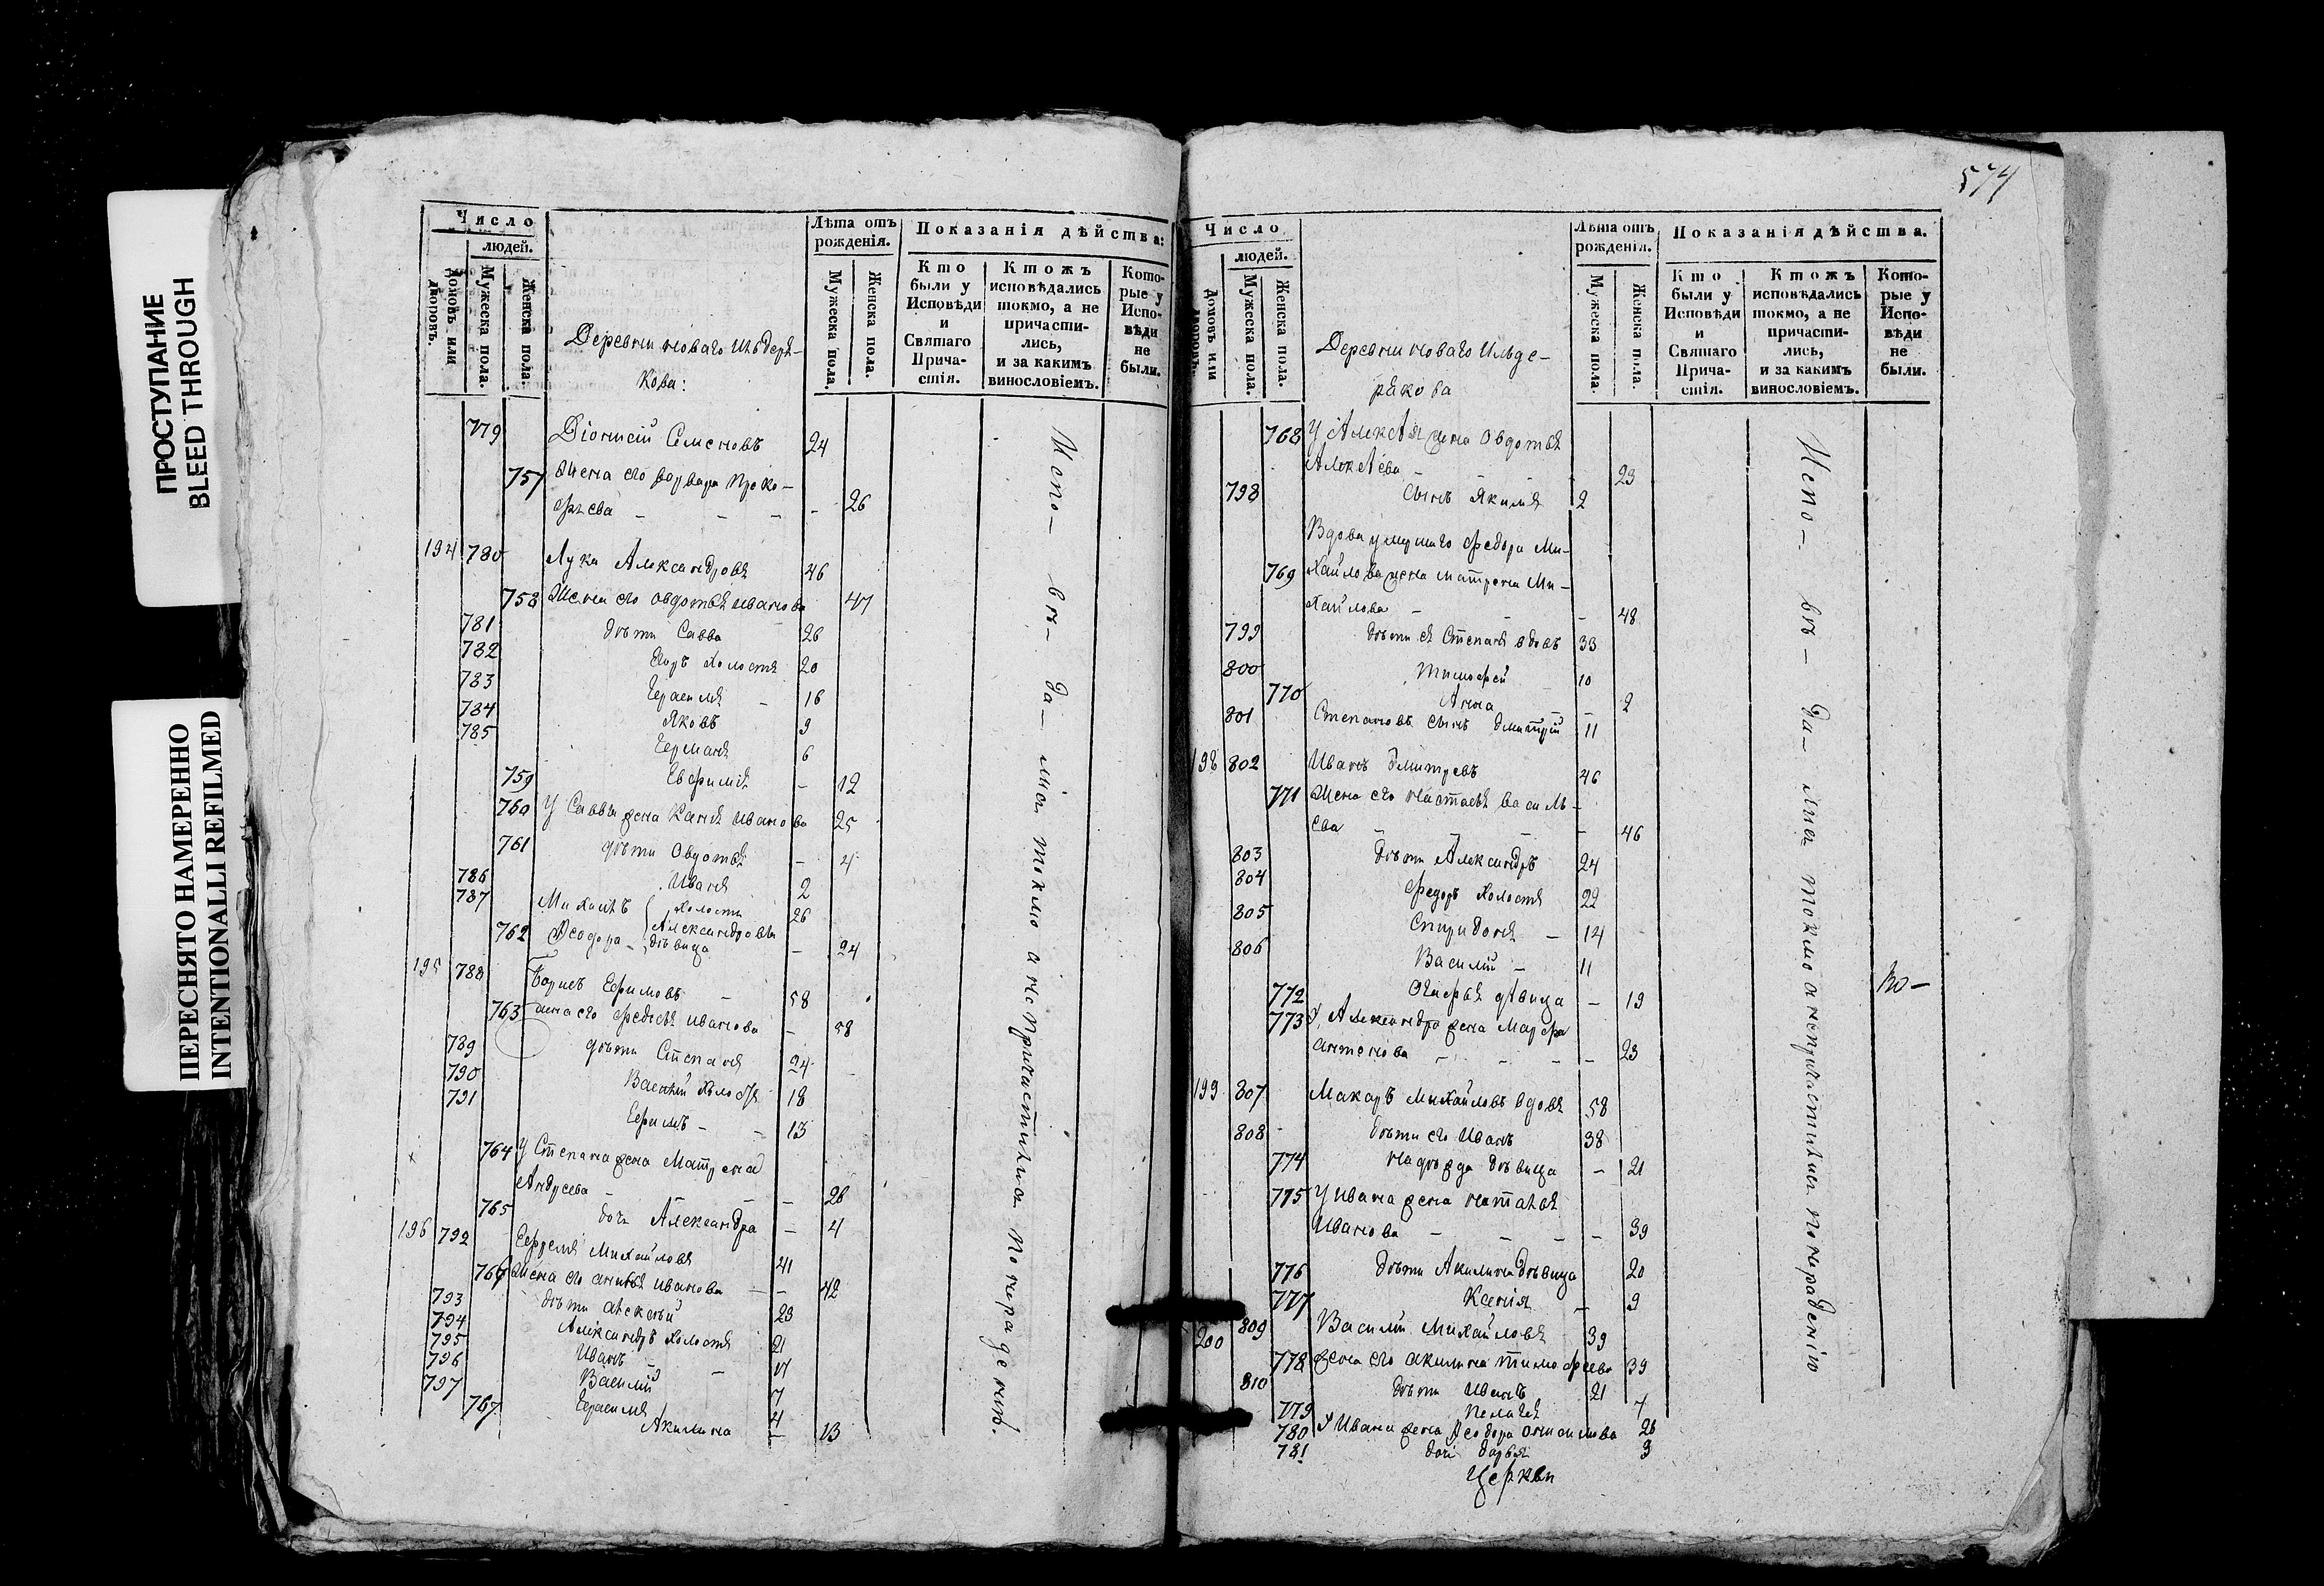 ПРОСТУПАНИЕ
BLEED THROUGH
ПЕРЕСНЯТО НАМЕРЕННО
INTENTIONALLI REFILMED
Число
людей.
Домовъ или дворовъ.
Мужеска пола.
Женска пола.
Деревни новаго Ильдеря-
кова:
Лѣта отъ рожденія.
Мужеска пола.
Женска пола.
Показанія дѣйства:
Кто были у Исповѣди и Святаго Прича-стія.
Ктожъ исповѣдались токмо, а не причасти-лись, и за какимъ винословіемъ.
Кото-рые у Испо-вѣди не были.
779 Діонисій Семеновъ 24
757 Жена его варвара Проко-
фьева - - - - 26
194 780 Лука Александровъ 46
758 Жена его Овдотья иванова 47
781 дѣти Савва 26
782 Егоръ холостъ 20
783 Герасимъ - 16
784 Яковъ 9
785 Германъ 6
759 Евфимія - 12
760 У Саввы жена иванова 25
761 дѣти Овдотья - 4
786 Иванъ 2
787 Михаилъ холостъ 26
Александровы
762 Ѳеодора - дѣвица - 24
195 788 Борисъ Ефимовъ - 58
763 жена его Федосья иванова - 58
789 дѣти Степанъ 24
790 Василій холостъ 18
791 Ефимъ - - 13
764 У Степана жена Матрена
Андреева - - - 26
765 дочь Александра - 4
196 792 Ефремъ Михайловъ 41
766 Жена его иванова - - 42
793 дѣти алексѣй 23
794 Александръ холостъ 21
795 Иванъ - 17
796 Василій - 7
797 Герасимъ 4
767 Акилина - 13
Испо- вѣ- да- лись токмо а не причастились по нераденію.
574
Число
людей.
Домовъ или дворовъ.
Мужеска пола.
Женска пола.
Деревни новаго Ильде-
рякова
Лѣта отъ рожденія.
Мужеска пола.
Женска пола.
Показанія дѣйства.
Кто были у Исповѣди и Святаго Прича-стія.
Ктожъ исповѣдались токмо, а не причасти-лись, и за какимъ винословіемъ.
Кото-рые у Испо-вѣди не были.
768 У жена Овдотья
- 23
798 Сынъ Якимъ 2
Вдова умершаго Федора Ми-
769 хайлова жена матрена Ми-
хайлова - - - 48
799 дѣти ея Степанъ вдовъ 33
800 Тимофей 10
770 Анна - - 2
801 Степановъ сынъ дмитрій 11
198 802 Иванъ дмитревъ 46
771 Жена его Настасья василь-
ева - - - - 46
803 дѣти Александръ 24
804 Федоръ холостъ 22
805 Спиридонъ - 14
806 Василій - 11
772 дѣвица - 19
773 У Александра жена Марфа
антонова - - - - 23
199 807 Макаръ Михайловъ вдовъ 58
808 дѣти его Иванъ 38
774 надежда дѣвица - 21
775 У ивана жена наталья
Иванова - - - - 39
776 дѣти Акилина дѣвица 20
777 Ксенія - 9
200 809 Василій Михайловъ 39
778 жена его акилина тимофеева 39
810 дѣти Иванъ 21
779 Пелагея 7
780 У Ивана жена Ѳеодора 26
781 дочь дарья 3
Церкви
Испо- вѣ- да- лись токмо а не причастились по нераденію